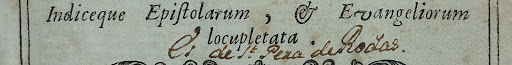 Indiceque Epistolarum, & Evangeliorum
locupletata.
Es de St. Pera de Rodas.